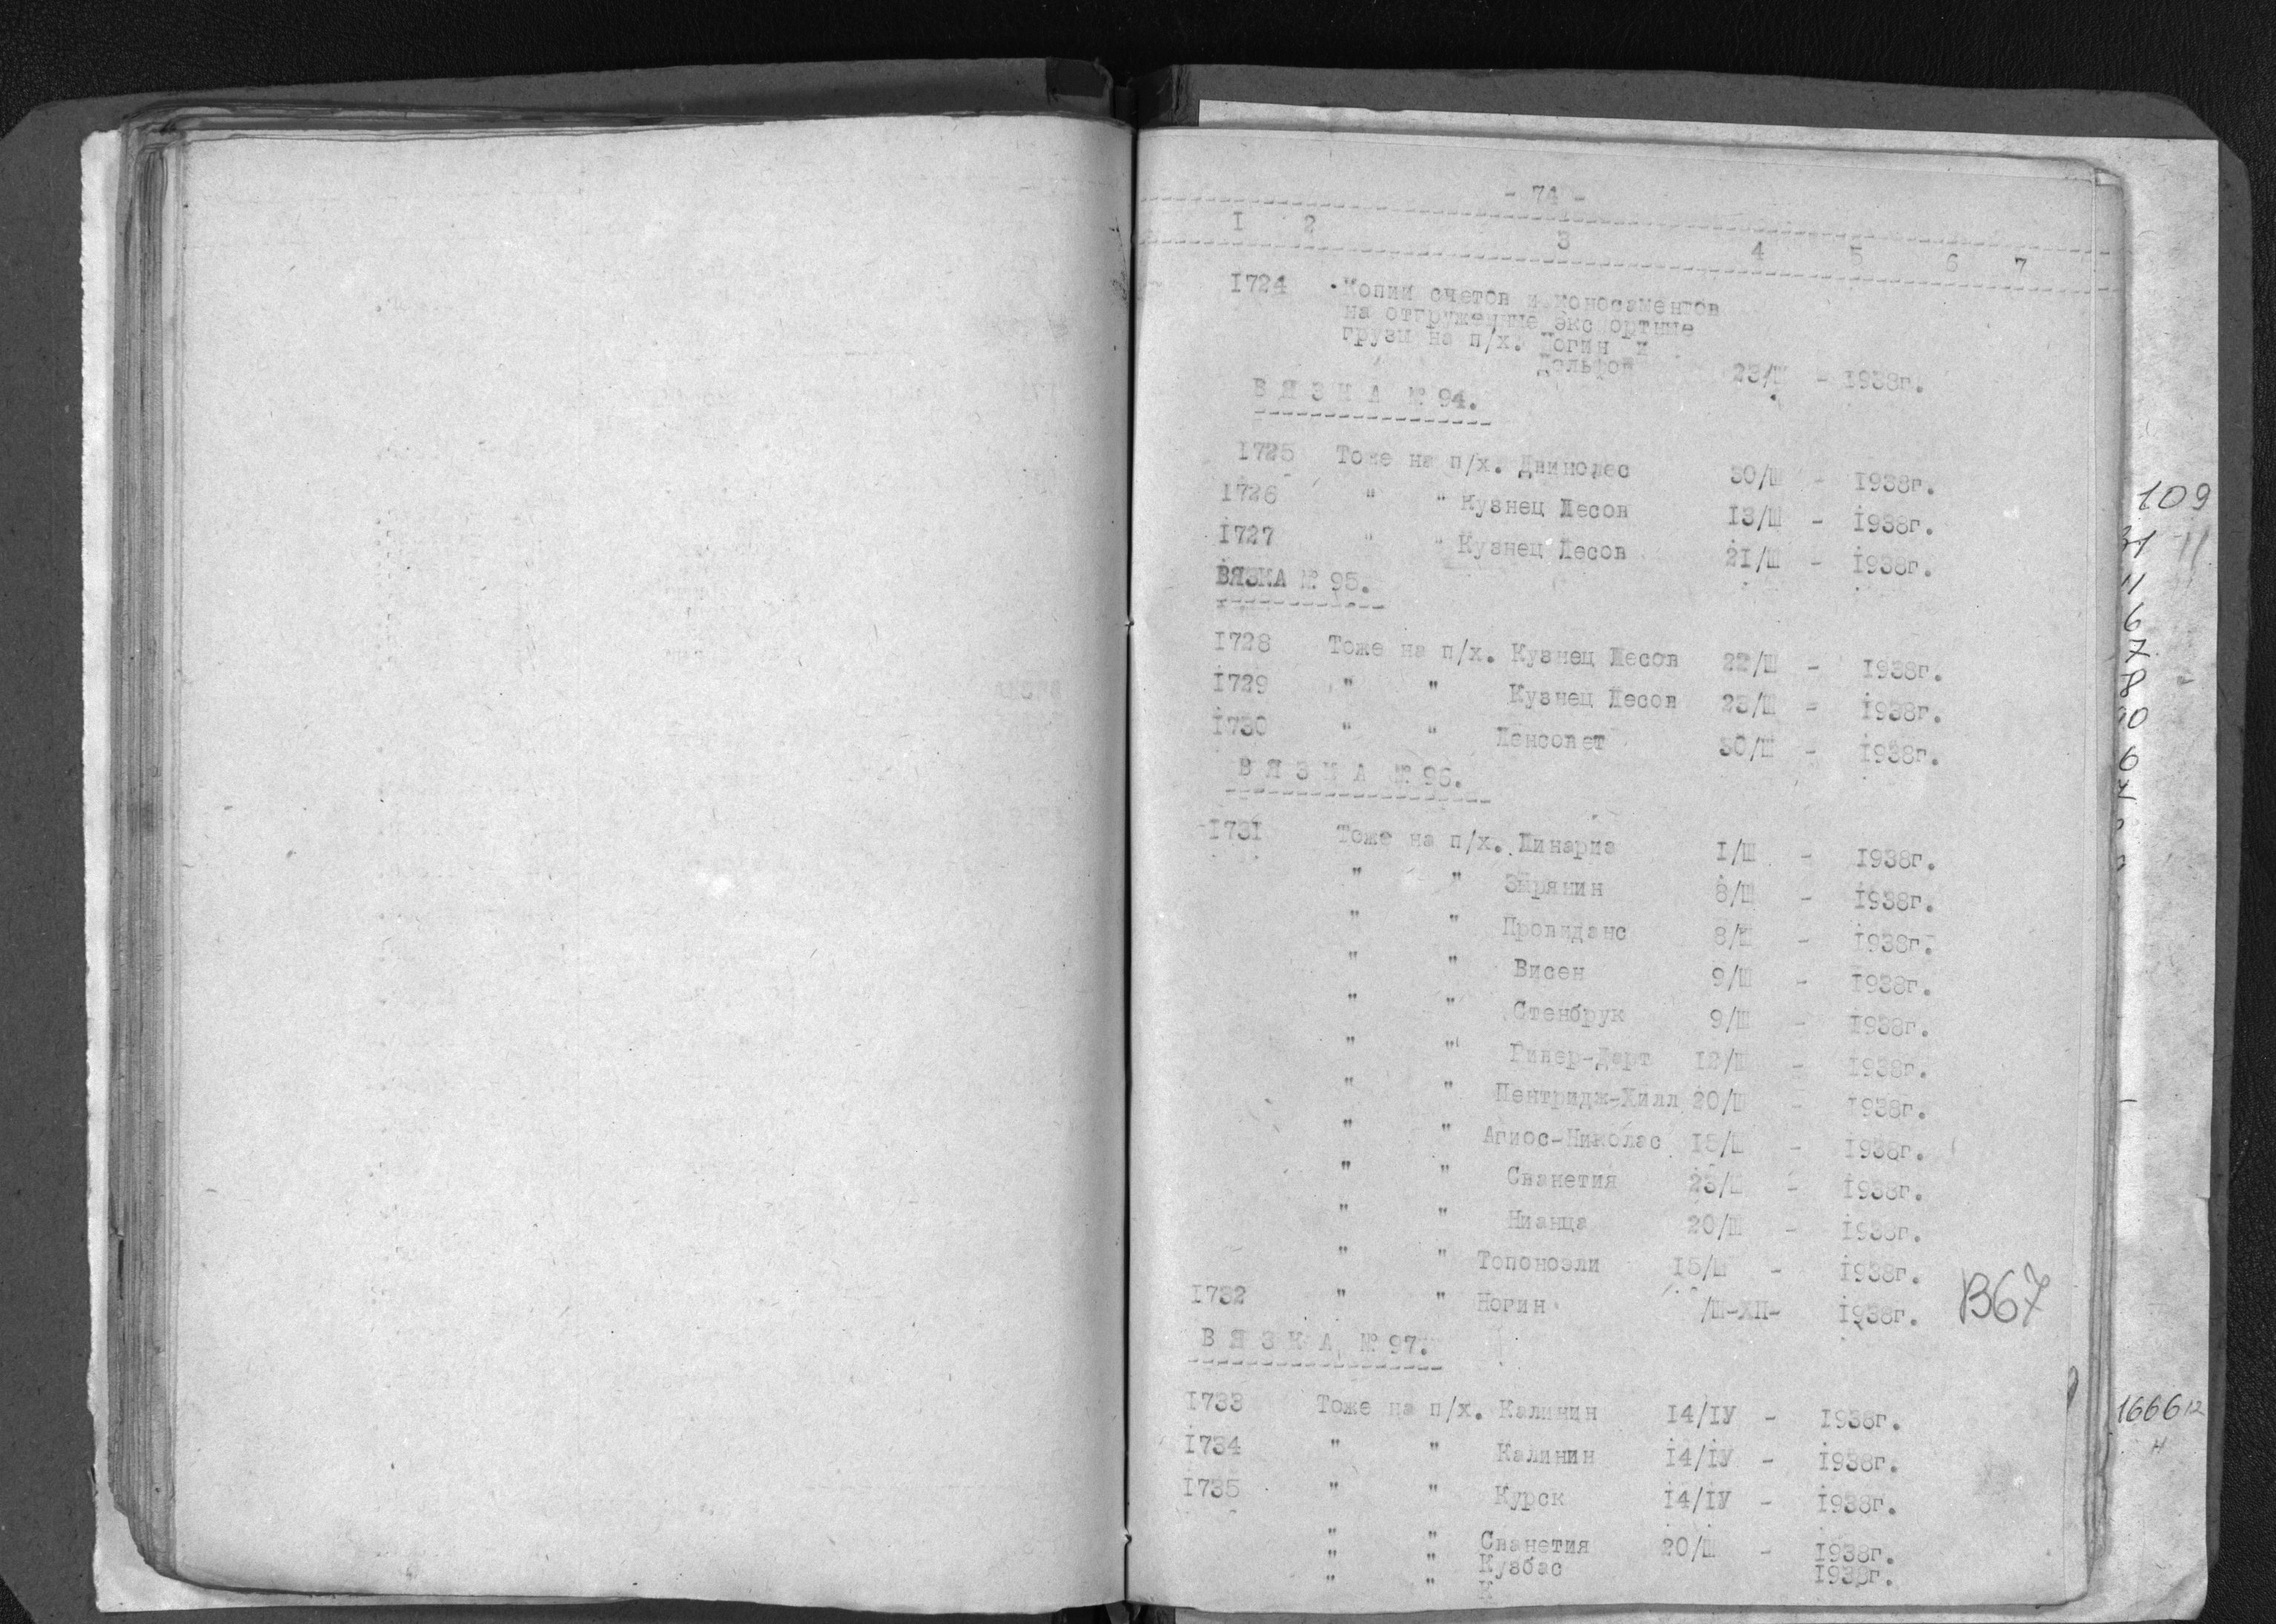 - 74 -
I 2 3 4 5 6 7
I724 Копии счетов и коносаментов
на отгруженные экспортные
грузы на п/х. Ногин и
Дельфои 23/Ш - I938г.
В Я З К А № 94.
I725 Тоже на п/х. Двинолес 30/Ш - I938г.
I726 " " Кузнец Лесов I3/Ш - I938г.
I727 " " Кузнец Лесов 2I/Ш - I938г.
ВЯЗКА № 95.
I728 Тоже на п/х. Кузнец Лесов 22/Ш - I938г.
I729 " " Кузнец Лесов 23/Ш - I938г.
I730 " " Ленсовет 30/Ш - I938г.
В Я З К А № 96.
I73I Тоже на п/х. Линариа I/Ш - I938г.
" " Зырянин 8/Ш - I938г.
" " Провиданс 8/Ш - I938г.
" " Висен 9/Ш - I938г.
" " Стенбрук 9/Ш - I938г.
" " Ривер-Дарт I2/Ш - I938г.
" " Пентридж-Хилл 20/Ш - I938г.
" " Агиос-Николас I5/Ш - I938г.
" " Сванетия 23/Ш - I938г.
" " Нианца 20/Ш - I938г.
" " Топоноэли I5/Ш - I938г.
I732 " " Ногин /Ш-ХП- I938г.
В67
В Я З К А № 97.
I733 Тоже на п/х. Калинин I4/IУ - I938г.
I734 " " Калинин I4/IУ - I938г.
I735 " " Курск I4/IУ - I938г.
" " Сванетия 20/Ш - I938г.
" " Кузбас I938г.
" " К
109
1666